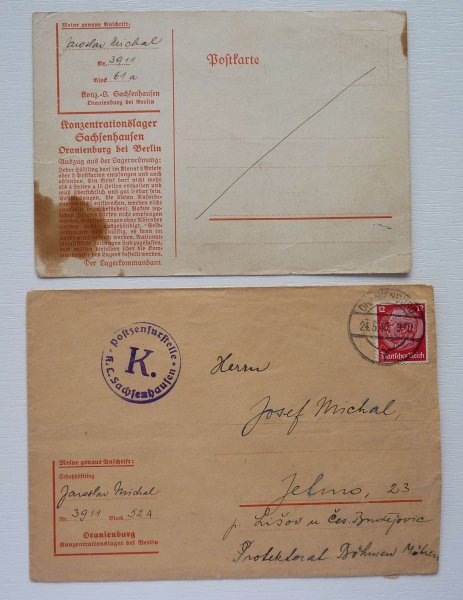 Meine genaue Anschrift:
Jaroslav Michal
Nr. 3911
Block 61a
Konz.-L. Sachsenhausen
Oranienburg bei Berlin
Postkarte
Konzentrationslager
Sachsenhausen
Oranienburg bei Berlin
Auszug aus der Lagerordnung:
Jeder Häftling darf im Monat 2 Briefe
oder 2 Postkarten empfangen und auch
absenden. Ein Brief darf nicht mehr
als 4 Seiten à 15 Zeilen enthalten und
muß übersichtlich und gut lesbar sein.
Der Lagerkommandant.
Postzensurstelle
K.
K.L. Sachsenhausen
24.5.
12
Deutsches Reich
Herrn
Josef Michal,
Jelmo, 23
p. Lišov u Čes. Budějovic
Protektorat Böhmen Mähren
Meine genaue Anschrift:
Schutzhäftling
Jaroslav Michal
Nr. 3911 Block 52A
Oranienburg
Konzentrationslager bei Berlin